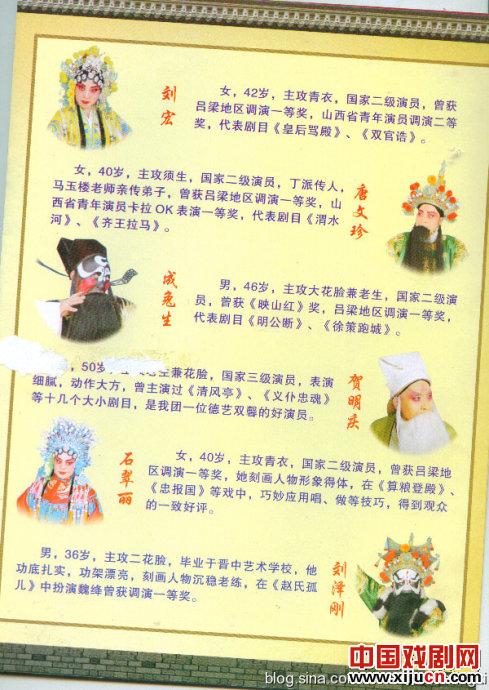 刘宏
女，42岁，主攻青衣，国家二级演员，曾获
吕梁地区调演一等奖，山西省青年演员调演二等
奖，代表剧目《皇后骂殿》、《双官诰》。
女，40岁，主攻须生，国家二级演员，丁派传人，
马玉楼老师亲传弟子，曾获吕梁地区调演一等奖，山
西省青年演员卡拉OK表演一等奖，代表剧目《渭水
河》、《齐王拉马》。
唐文珍
成兔生
男，46岁，主攻大花脸兼老生，国家二级演
员，曾获《映山红》奖，吕梁地区调演一等奖，
代表剧目《明公断》、《徐策跑城》。
，50岁，
生兼花脸，国家三级演员，表演
细腻，动作大方，曾主演过《清风亭》、《义仆忠魂》
等十几个大小剧目，是我团一位德艺双馨的好演员。
贺明庆
石翠丽
女，40岁，主攻青衣，国家二级演员，曾获吕梁地
区调演一等奖，她刻画人物形象得体，在《算粮登殿》、
《忠报国》等戏中，巧妙应用唱、做等技巧，得到观众
的一致好评。
男，36岁，主攻二花脸，毕业于晋中艺术学校，他
功底扎实，功架漂亮，刻画人物沉稳老练，在《赵氏孤
儿》中扮演魏绛曾获调演一等奖。
刘泽刚
中国戏剧网
www.xijucn.com
blog.sina.com